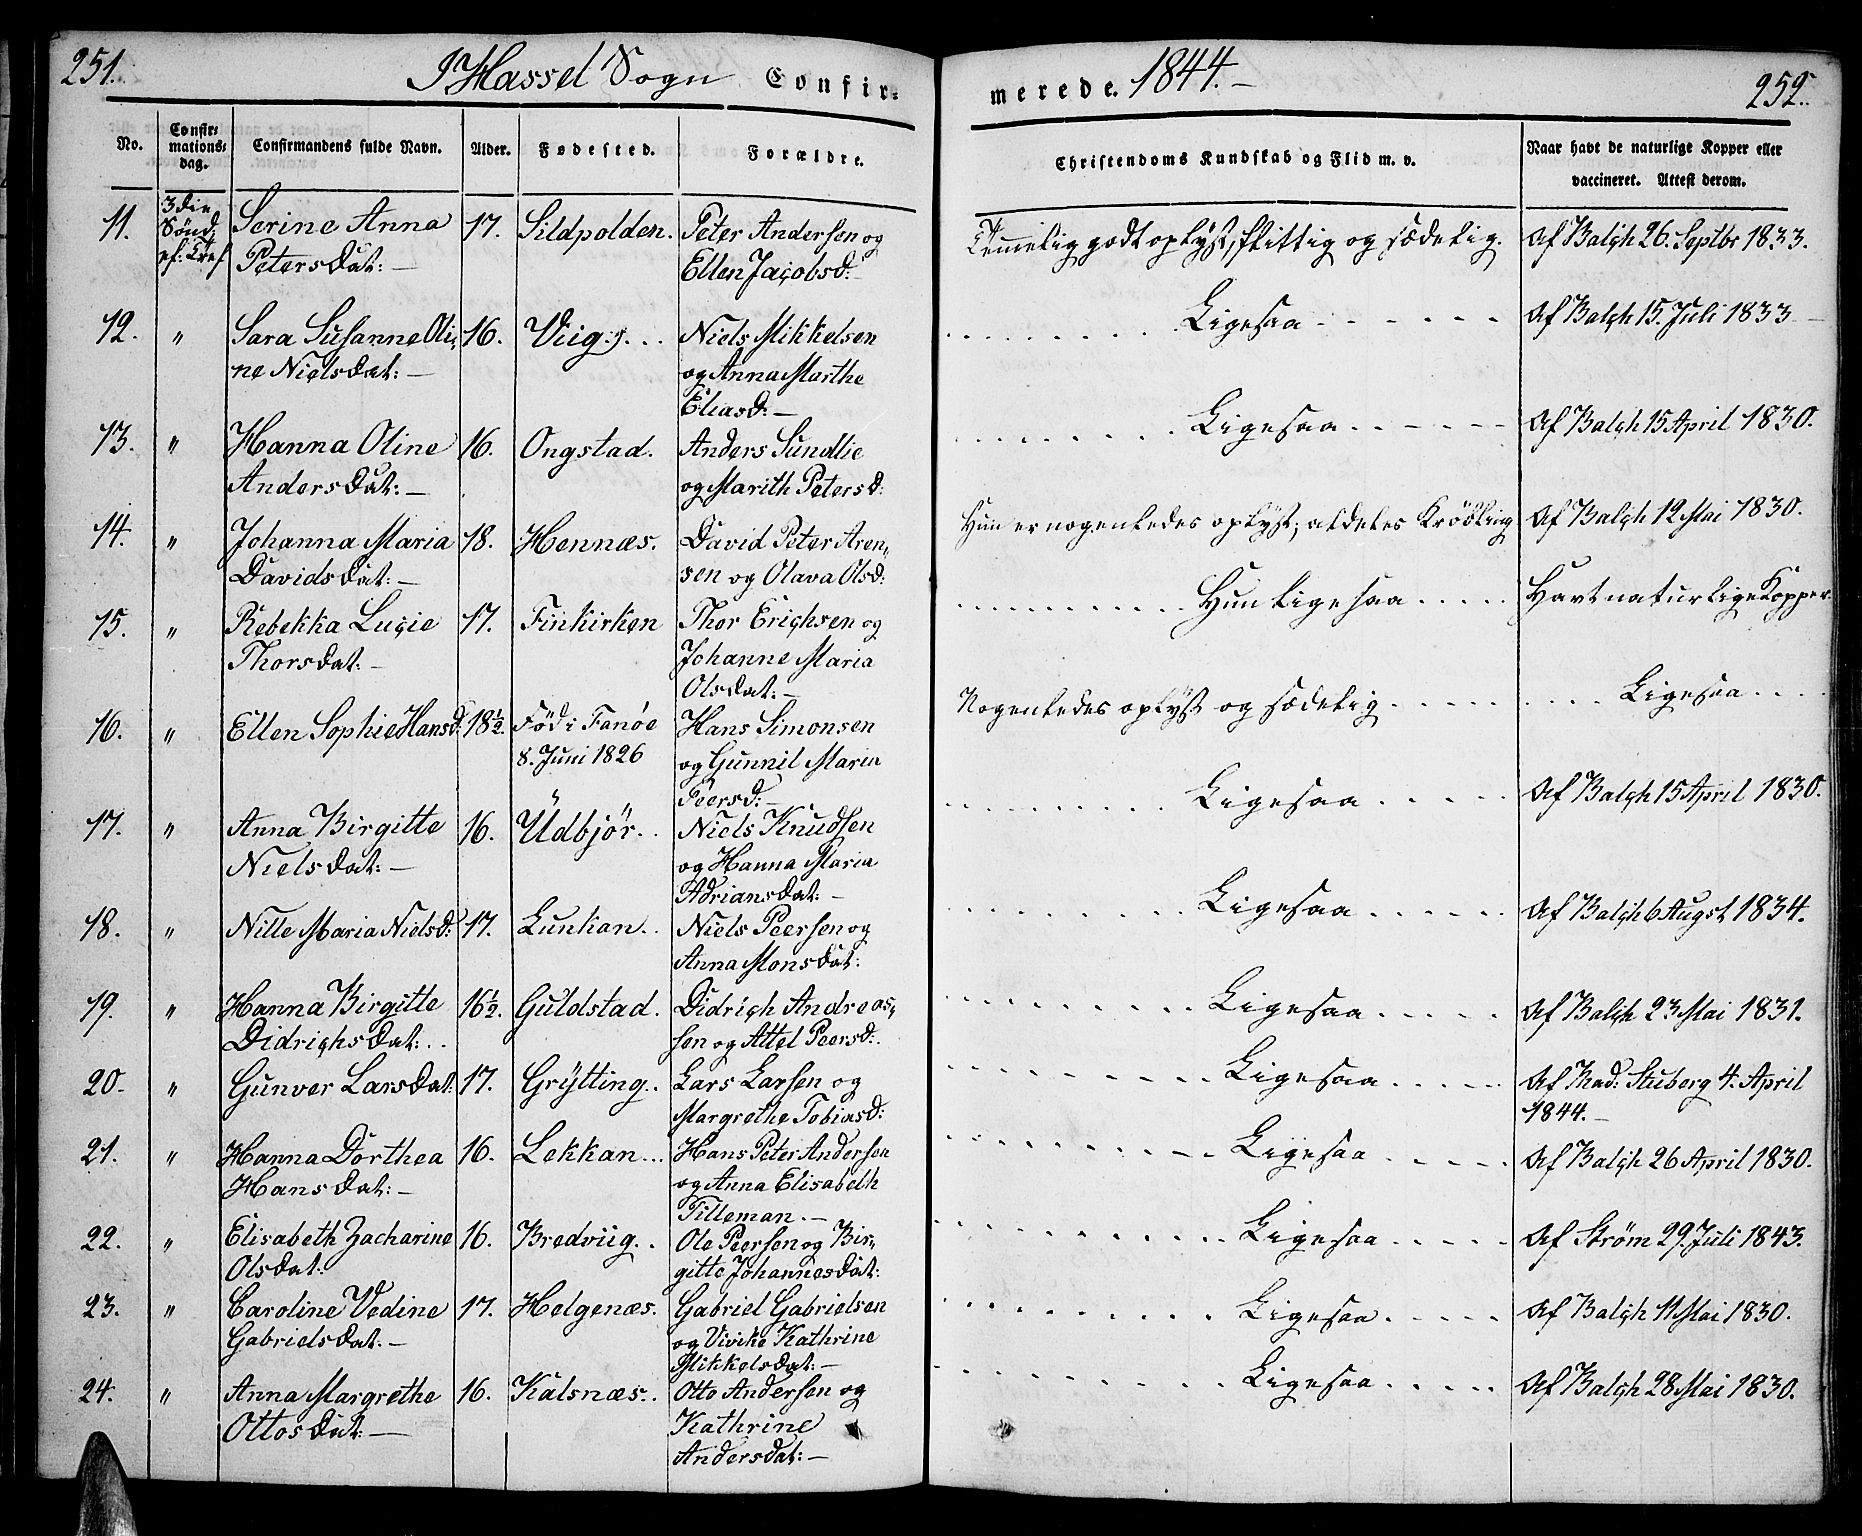 251. I Hassel Sogn Confir= merede. 1844.– 252.
No. Confir=mations=dag. Confirmandens fulde Navn. Alder. Fødested. Forældre. Christendoms Kundskab og Flid m. v. Naar havt de naturlige Kopper eller vaccineret. Attest derom.
11. 3die Sønd. ef: Tref Serine Anna 17. Sildpolden. Peter Andersen og Temmelig godt oplyst, flittig og sædelig. Af Balgh 26. Septbr 1833.
Petersdat:– Ellen Jacobsd:
12. " Sara Susanne Oli, 16. Viig. Niels Mikkelsen Ligesaa Af Balgh 15. Juli 1833
ne Nielsdat:– og Anna Marthe
Eliasd:–
13. " Hanna Oline 16. Ongstad. Anders Sundlie Ligesaa Af Balgh 15 April 1830.
Andersdat:– og Marith Petersd:
14. " Johanna Maria 18. Hennæs. David Peter Aren, Hun er nogenledes oplyst; aldeles Krøbling Af Balgh 12 Mai 1830.
Davidsdat:– sen og Olava Olsd:
15. " Rebekka Lucie 17. Finkirken Thor Erichsen og Hun ligesaa Havt naturlige Kopper.
Thorsdat:– Johanne Maria
Olsdat:–
16. " Ellen Sophie Hansd: 18½. Föd i Fanöe Hans Simonsen Nogenledes oplyst og sædelig Ligesaa
8. Juni 1826 og Gunnil Maria
Peersd:–
17. " Anna Birgitte 16. Udbjör. Niels Knudsen Ligesaa Af Balgh 15 April 1830.
Nielsdat:– og Hanna Maria
Adriansdat:–
18. " Nille Maria Nielsd: 17. Lunkan. Niels Peersen og Ligesaa Af Balgh 6 Augst 1834.
Anna Monsdat:
19. " Hanna Birgitte 16½. Guldstad. Didrich Andreas, Ligesaa Af Balgh 23 Mai 1831.
Didrichsdat: sen og Attel Peersd:
20. " Gunver Larsdat: 17. Grytting. Lars Larsen og Ligesaa Af Mad: Stuberg 4. April
Margrethe Tobiasd: 1844.–
21. " Hanna Dorthea 16. Lekkan Hans Peter Andersen Ligesaa Af Balgh 26 April 1830.
Hansdat:– og Anna Elisabeth
Tilleman.–
22. " Elisabeth Zacharine 16. Bredviig. Ole Peersen og Bir, Ligesaa Af Strøm 29. Juli 1843.
Olsdat: gitte Johannesdat:
23. " Caroline Vedine 17. Helgenæs. Gabriel Gabrielsen Ligesaa Af Balgh 11 Mai 1830.
Gabrielsdat:– og Vivike Kathrine
Mikkelsdat:–
24. " Anna Margrethe 16. Kalsnæs. Otto Andersen og Ligesaa Af Balgh 28 Mai 1830.
Ottosdat:– Kathrine
Andersdat:–